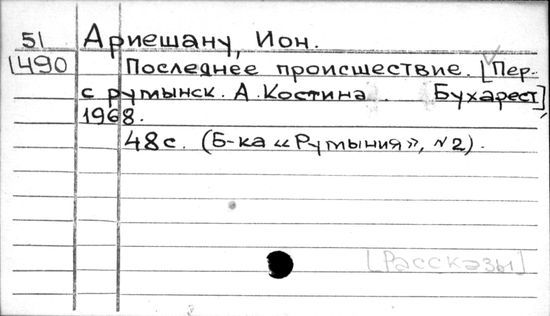 51 Ариешану, Ион.
1490 Последнее происшествие. [Пер.
с румынск. А. Костина. Бухарест],
1968.
48 с. (Б-ка «Румыния», №2).
[Рассказы]